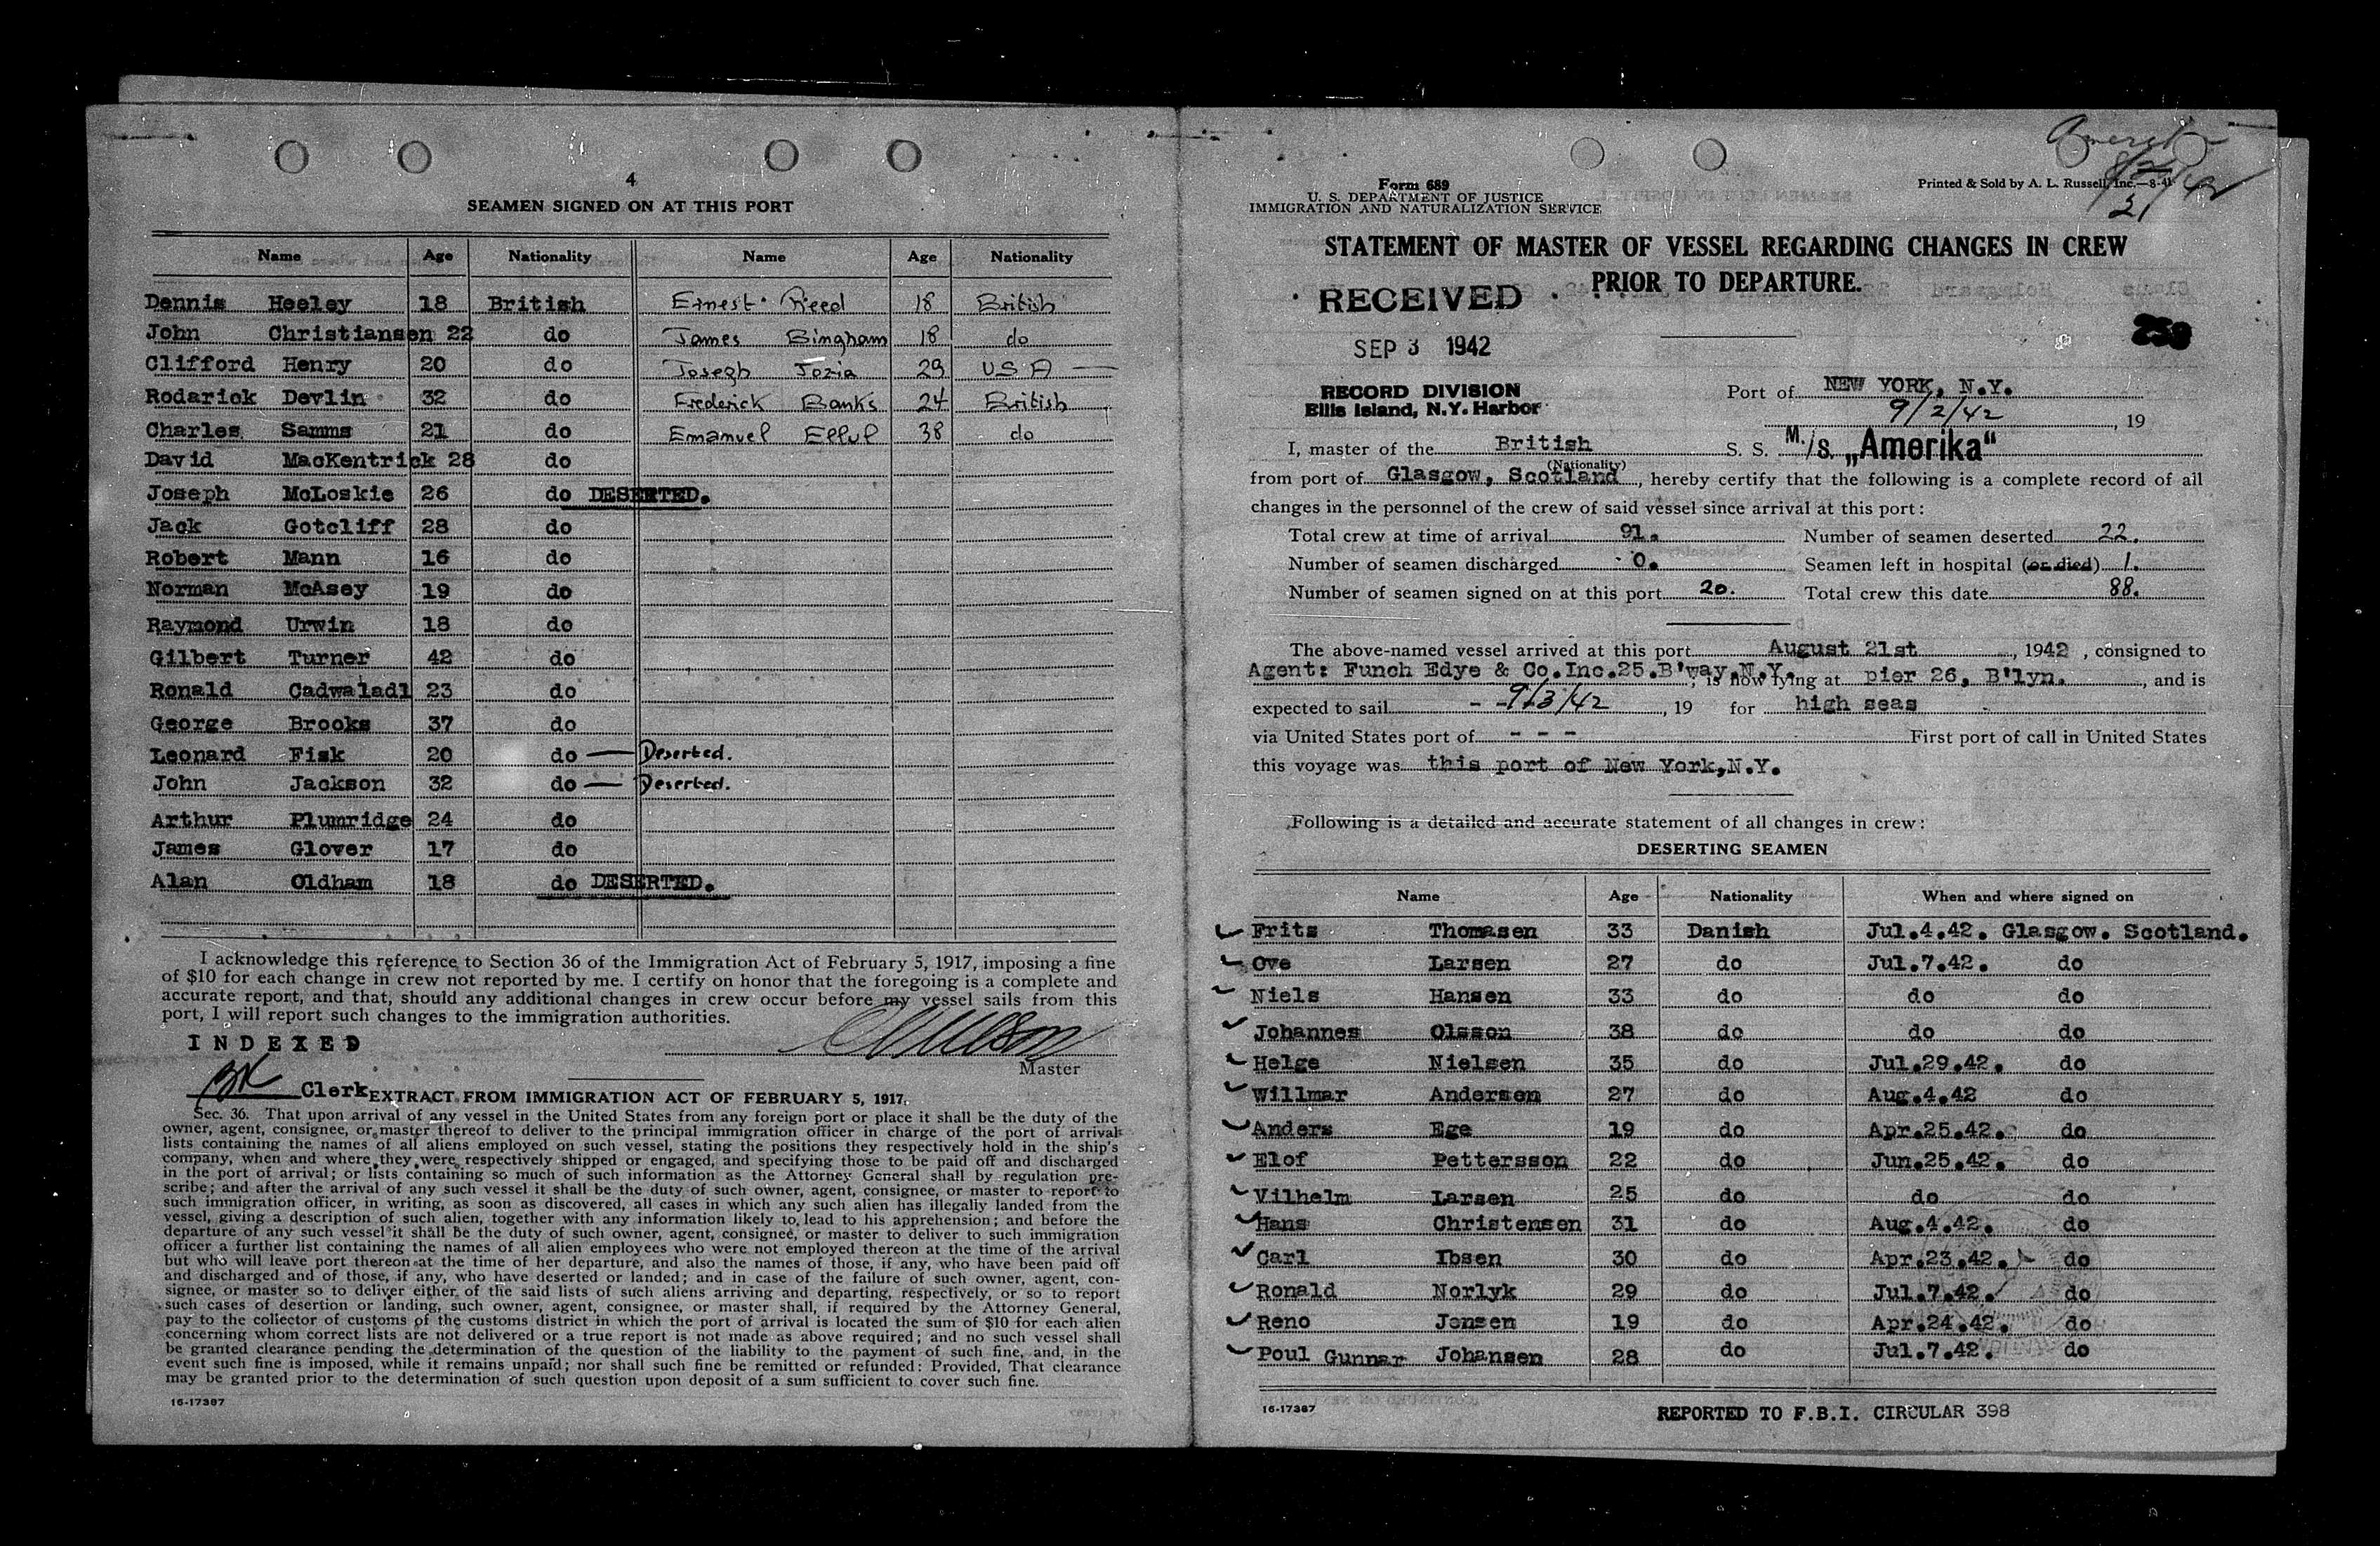 4
SEAMEN SIGNED ON AT THIS PORT
Name Age Nationality Name Age Nationality
Dennis Heeley 18 British Ernest Reed 18 British
John Christiansen 22 do James Bingham 18 do
Clifford Henry 20 do Joseph Jozia 29 USA —
Rodarick Devlin 32 do Frederick Banks 24 British
Charles Samms 21 do Emanuel Ellul 38 do
David MacKentrick 28 do
Joseph McLoskie 26 do DESERTED.
Jack Gotcliff 28 do
Robert Mann 16 do
Norman McAsey 19 do
Raymond Urwin 18 do
Gilbert Turner 42 do
Ronald Cadwaladl 23 do
George Brooks 37 do
Leonard Fisk 20 do — Deserted.
John Jackson 32 do — Deserted.
Arthur Plumridge 24 do
James Glover 17 do
Alan Oldham 18 do DESERTED.
I acknowledge this reference to Section 36 of the Immigration Act of February 5, 1917, imposing a fine
of $10 for each change in crew not reported by me. I certify on honor that the foregoing is a complete and
accurate report, and that, should any additional changes in crew occur before my vessel sails from this
port, I will report such changes to the immigration authorities.
INDEXED
Master
Clerk
EXTRACT FROM IMMIGRATION ACT OF FEBRUARY 5, 1917.
Sec. 36. That upon arrival of any vessel in the United States from any foreign port or place it shall be the duty of the
owner, agent, consignee, or master thereof to deliver to the principal immigration officer in charge of the port of arrival
lists containing the names of all aliens employed on such vessel, stating the positions they respectively hold in the ship's
company, when and where they were respectively shipped or engaged, and specifying those to be paid off and discharged
in the port of arrival; or lists containing so much of such information as the Attorney General shall by regulation pre-
scribe; and after the arrival of any such vessel it shall be the duty of such owner, agent, consignee, or master to report to
such immigration officer, in writing, as soon as discovered, all cases in which any such alien has illegally landed from the
vessel, giving a description of such alien, together with any information likely to lead to his apprehension; and before the
departure of any such vessel it shall be the duty of such owner, agent, consignee, or master to deliver to such immigration
officer a further list containing the names of all alien employees who were not employed thereon at the time of the arrival
but who will leave port thereon at the time of her departure, and also the names of those, if any, who have been paid off
and discharged and of those, if any, who have deserted or landed; and in case of the failure of such owner, agent, con-
signee, or master so to deliver either of the said lists of such aliens arriving and departing, respectively, or so to report
such cases of desertion or landing, such owner, agent, consignee, or master shall, if required by the Attorney General,
pay to the collector of customs of the customs district in which the port of arrival is located the sum of $10 for each alien
concerning whom correct lists are not delivered or a true report is not made as above required; and no such vessel shall
be granted clearance pending the determination of the question of the liability to the payment of such fine, and, in the
event such fine is imposed, while it remains unpaid; nor shall such fine be remitted or refunded: Provided, That clearance
may be granted prior to the determination of such question upon deposit of a sum sufficient to cover such fine.
16-17387
Form 689
U. S. DEPARTMENT OF JUSTICE
IMMIGRATION AND NATURALIZATION SERVICE
Printed & Sold by A. L. Russell, Inc.—8-41
STATEMENT OF MASTER OF VESSEL REGARDING CHANGES IN CREW
PRIOR TO DEPARTURE.
RECEIVED
SEP 3 1942
RECORD DIVISION
Ellis Island, N.Y. Harbor
Port of NEW YORK, N.Y.
9/2/42, 19
I, master of the British S. S. M./s. „Amerika“
(Nationality)
from port of Glasgow, Scotland, hereby certify that the following is a complete record of all
changes in the personnel of the crew of said vessel since arrival at this port:
Total crew at time of arrival 91. Number of seamen deserted 22.
Number of seamen discharged 0. Seamen left in hospital (or died) 1.
Number of seamen signed on at this port 20. Total crew this date 88.
The above-named vessel arrived at this port August 21st, 1942, consigned to
Agent: Funch Edye & Co.Inc.25.B'way.N.Y., is now lying at pier 26, B'lyn., and is
expected to sail - - 9/3/42, 19 for high seas
via United States port of - - - First port of call in United States
this voyage was this port of New York,N.Y.
Following is a detailed and accurate statement of all changes in crew:
DESERTING SEAMEN
Name Age Nationality When and where signed on
Frits Thomasen 33 Danish Jul.4.42. Glasgow. Scotland.
Ove Larsen 27 do Jul.7.42. do
Niels Hansen 33 do do do
Johannes Olsson 38 do do do
Helge Nielsen 35 do Jul.29.42. do
Willmar Andersen 27 do Aug.4.42 do
Anders Ege 19 do Apr.25.42. do
Elof Pettersson 22 do Jun.25.42. do
Vilhelm Larsen 25 do do do
Hans Christensen 31 do Aug.4.42. do
Carl Ibsen 30 do Apr.23.42. do
Ronald Norlyk 29 do Jul.7.42. do
Reno Jensen 19 do Apr.24.42. do
Poul Gunnar Johansen 28 do Jul.7.42. do
16-17387
REPORTED TO F.B.I. CIRCULAR 398